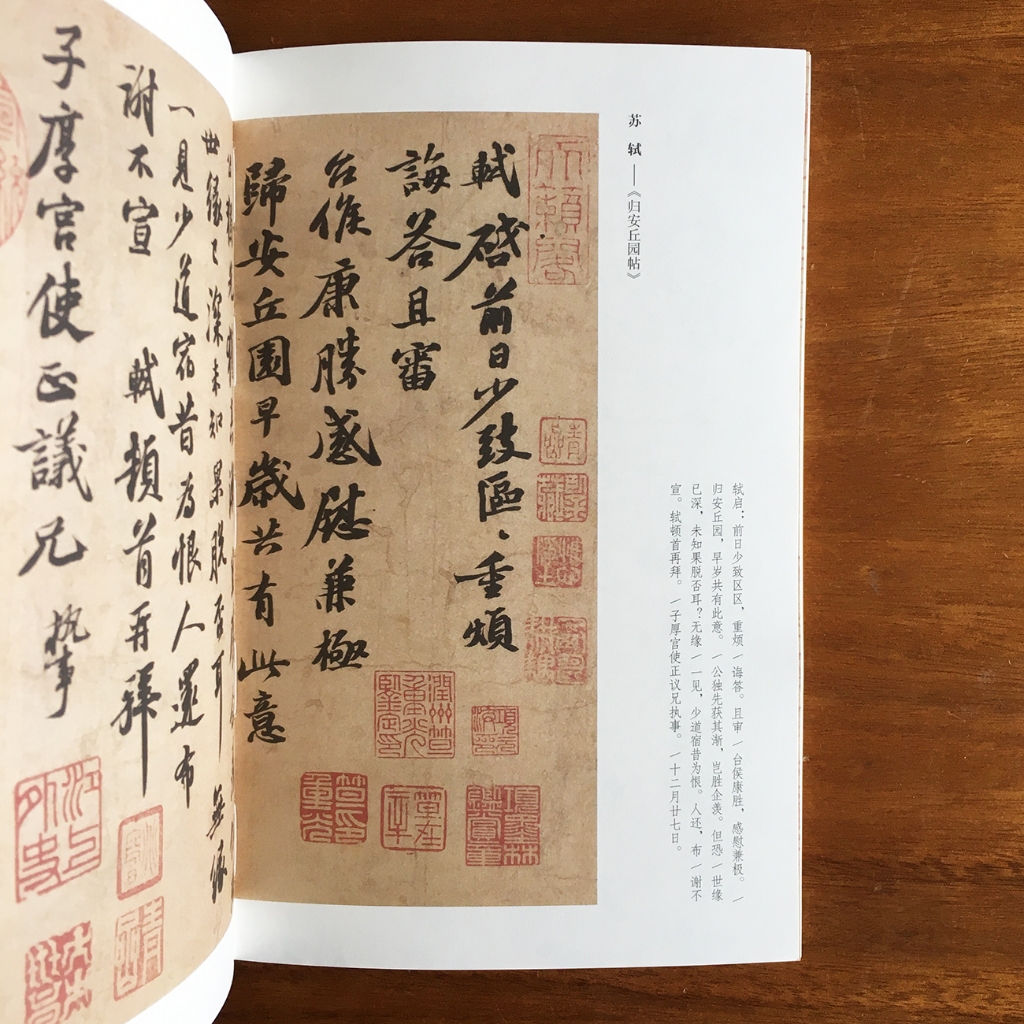 轼启：前日少致区区，重烦／诲答。且审／台侯康胜，感慰兼极。／
归安丘园，早岁共有此意。／公独先获其渐，岂胜企羡。但恐／世缘
已深，未知果脱否耳？无缘／一见，少道宿昔为恨。人还，布／谢不
宣。轼顿首再拜。／子厚宫使正议兄执事。／十二月廿七日。
苏 轼——《归安丘园帖》
軾啓前日少致區〻重煩
誨答且審
台候康勝感慰兼極
歸安丘園早歲共有此意
世緣已深未知果脫否耳 無緣
一見少道宿昔為恨人還布
謝不宣 軾頓首再拜
子厚宮使正議兄 執事